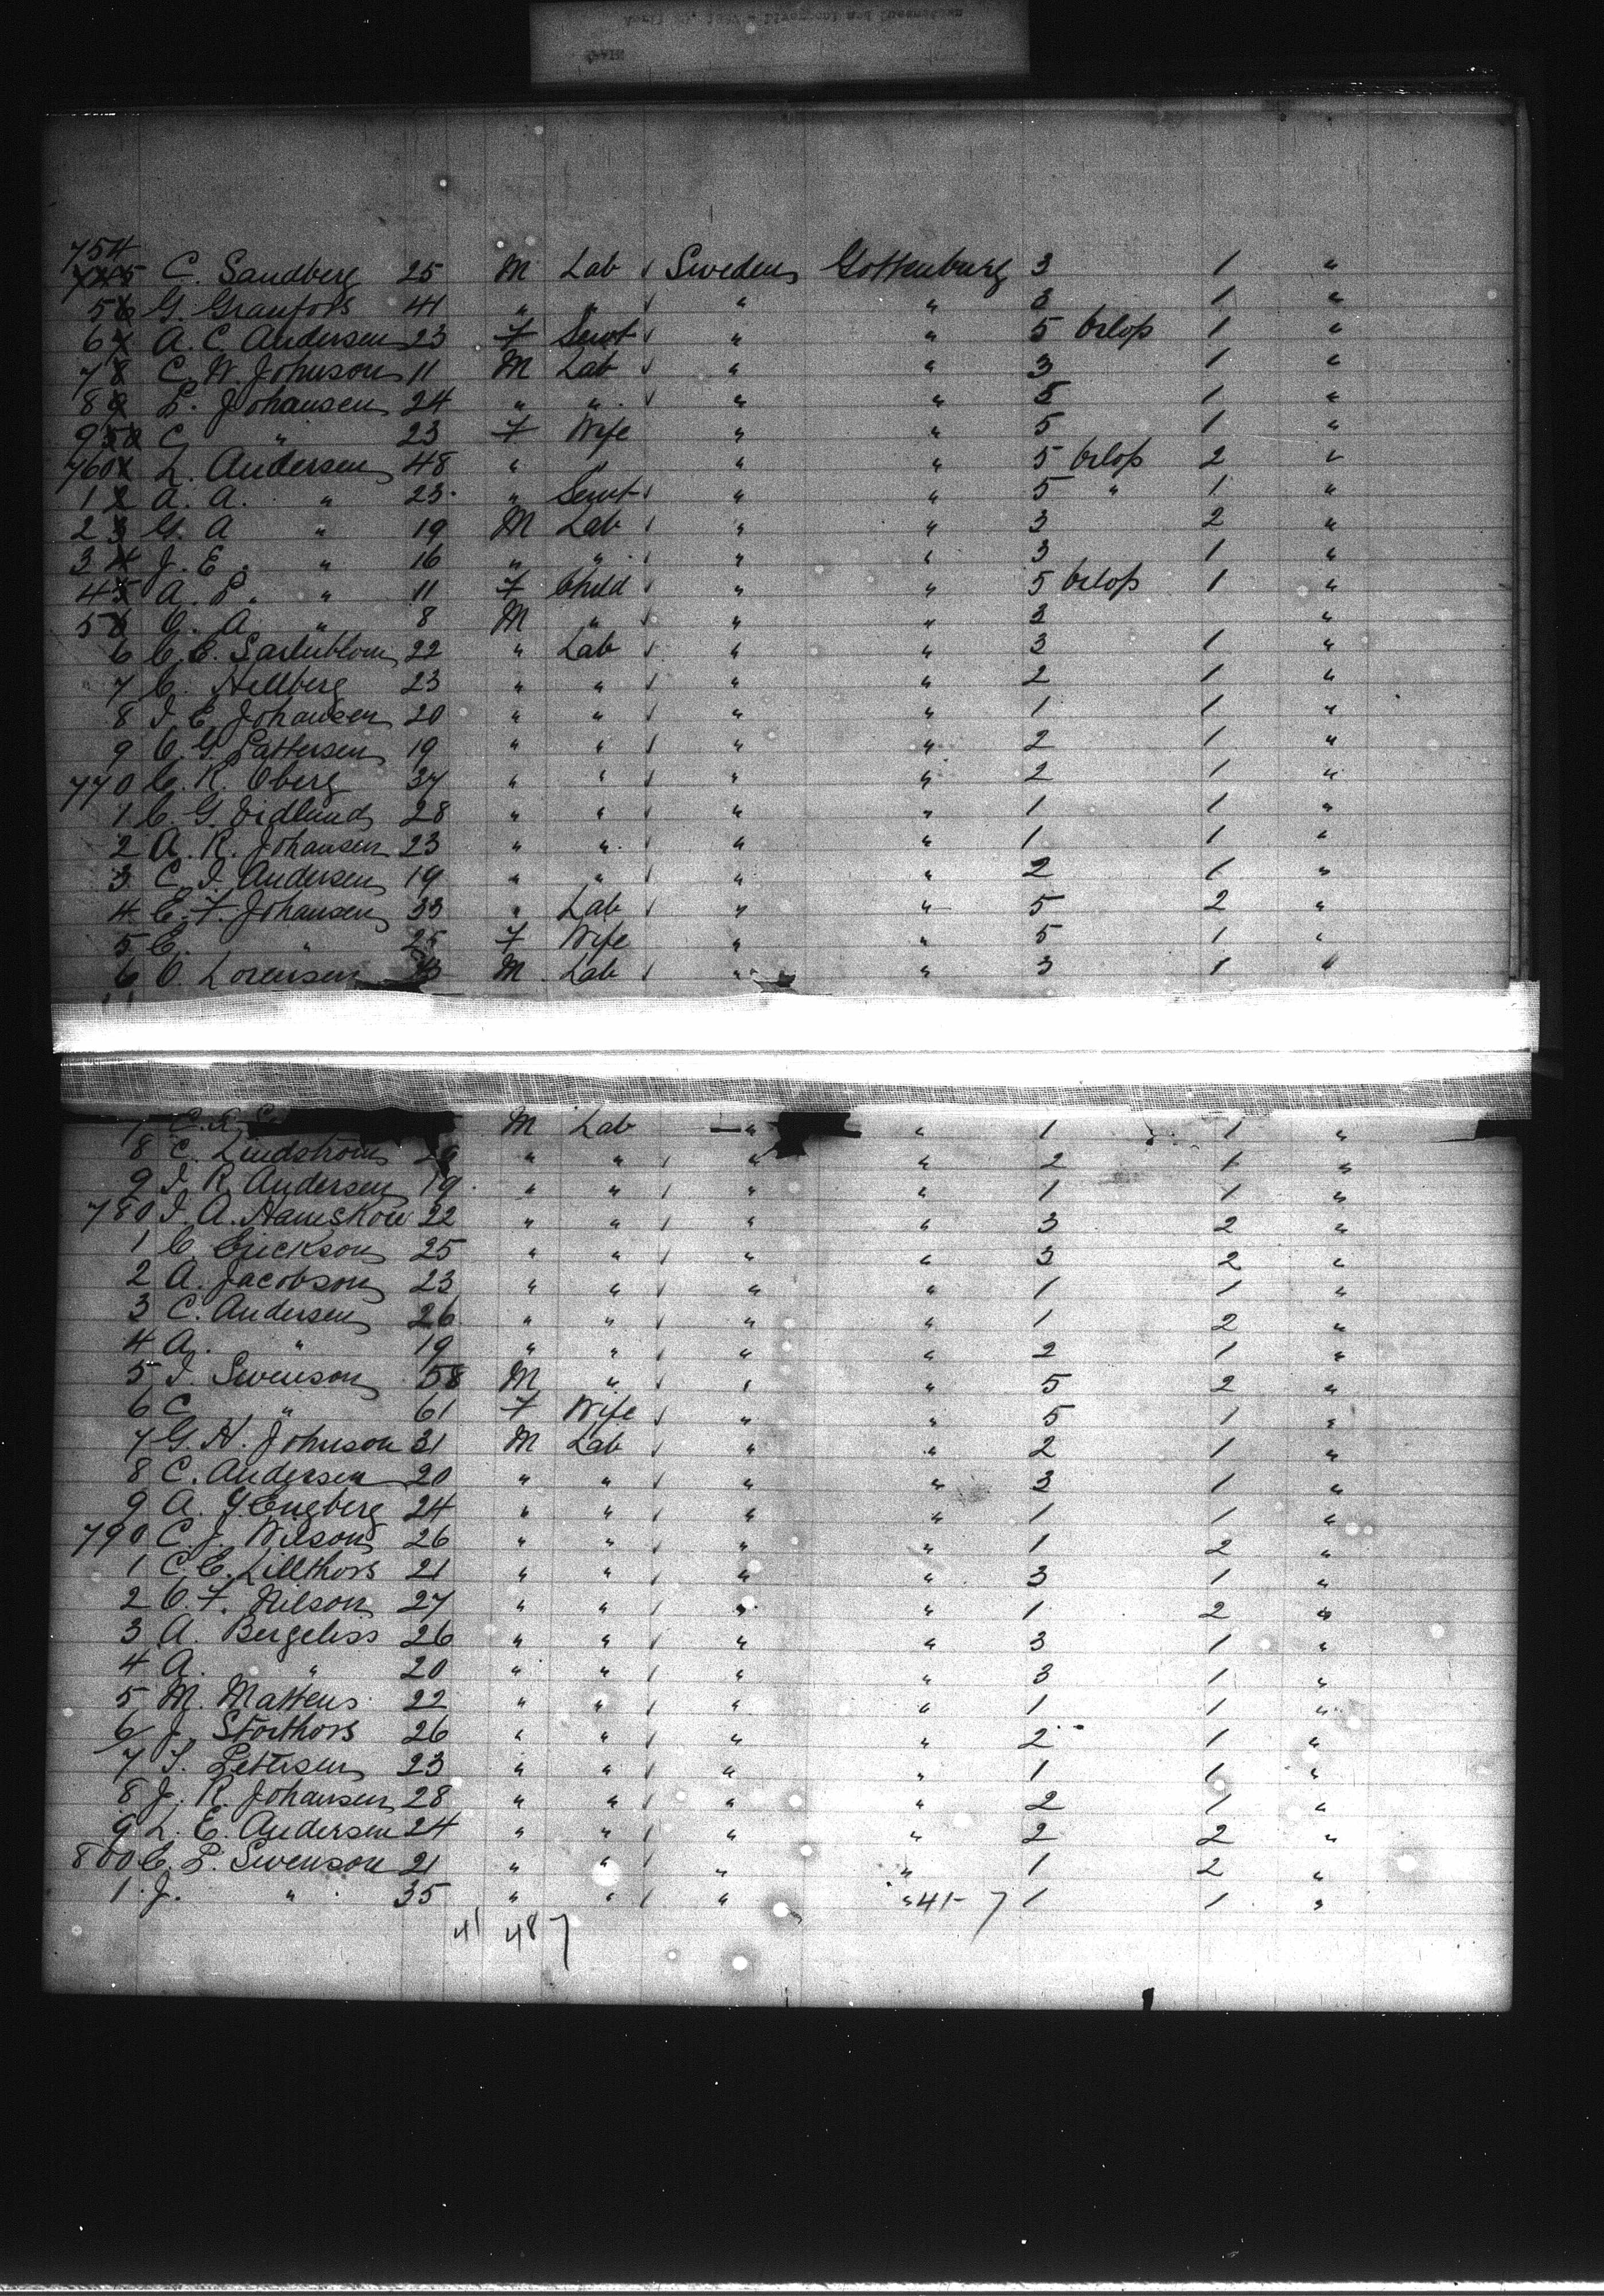 754 C. Sandberg 25 M Lab ✓ Sweden Gottenburg 3 1 "
5 G. Granfors 41 " " ✓ " " 3 1 "
6 A. C. Andersen 23 F Servt ✓ " " 5 Orlop 1 "
7 C. W. Johnson 11 M Lab ✓ " " 3 1 "
8 L. Johansen 24 " " ✓ " " 5 1 "
9 C " 23 F Wife " " 5 1 "
760 L. Andersen 48 " " " " 5 Orlop 2 "
1 A. A. " 23 " Servt ✓ " " 5 " 1 "
2 G. A " 19 M Lab ✓ " " 3 2 "
3 J. E. " 16 " " ✓ " " 3 1 "
4 A. L. " 11 F Child ✓ " " 5 Orlop 1 "
5 O. A " 8 M " ✓ " " 3 "
6 C. E. 22 " Lab ✓ " " 3 1 "
7 C. Hellberg 23 " " ✓ " " 2 1 "
8 I. E. Johansen 20 " " ✓ " " 1 1 "
9 O. G. Pattersen 19 " " ✓ " " 2 1 "
770 C. R. Oberg 37 " " ✓ " " 2 1 "
1 C. G. Vidlund 28 " " ✓ " " 1 1 "
2 A. R. Johansen 23 " " ✓ " " 1 1 "
3 C. I. Andersen 19 " " ✓ " " 2 1 "
4 C. F. Johansen 33 " Lab ✓ " " 5 2 "
5 C. " 25 F Wife " " 5 1 "
6 O. Lorensen M Lab ✓ " " 3 1 "
7 M Lab " " 1 1 "
8 C. Lindstrom " " ✓ " " 2 1 "
9 I. R. Andersen 19 " " ✓ " " 1 1 "
780 I. A. 22 " " ✓ " " 3 2 "
1 C. Erickson 25 " " ✓ " " 3 2 "
2 A. Jacobson 23 " " ✓ " " 1 1 "
3 C. Andersen 26 " " ✓ " " 1 2 "
4 A. " 19 " " ✓ " " 2 1 "
5 I. Swenson 58 M " ✓ " " 5 2 "
6 C " 61 F Wife ✓ " " 5 1 "
7 G. H. Johnson 31 M Lab ✓ " " 2 1 "
8 C. Andersen 20 " " ✓ " " 3 1 "
9 A. G. Engberg 24 " " ✓ " " 1 1 "
790 C. J. Wilson 26 " " ✓ " " 1 2 "
1 C. E. Lillthors 21 " " ✓ " " 3 1 "
2 O. F. Nilson 27 " " ✓ " " 1 2 "
3 A. Bergeliss 26 " " ✓ " " 3 1 "
4 A. " 20 " " ✓ " " 3 1 "
5 M. Mattens 22 " " ✓ " " 1 1 "
6 J. Storthors 26 " " ✓ " " 2 1 "
7 Pettersen 23 " " ✓ " " 1 1 "
8 J. R. Johansen 28 " " ✓ " " 2 1 "
9 L. E. Andersen 24 " " ✓ " " 2 2 "
800 C. L. Swenson 21 " " ✓ " " 1 2 "
1 J. " 35 " " ✓ " " 41-7 1 1 "
41 48 7